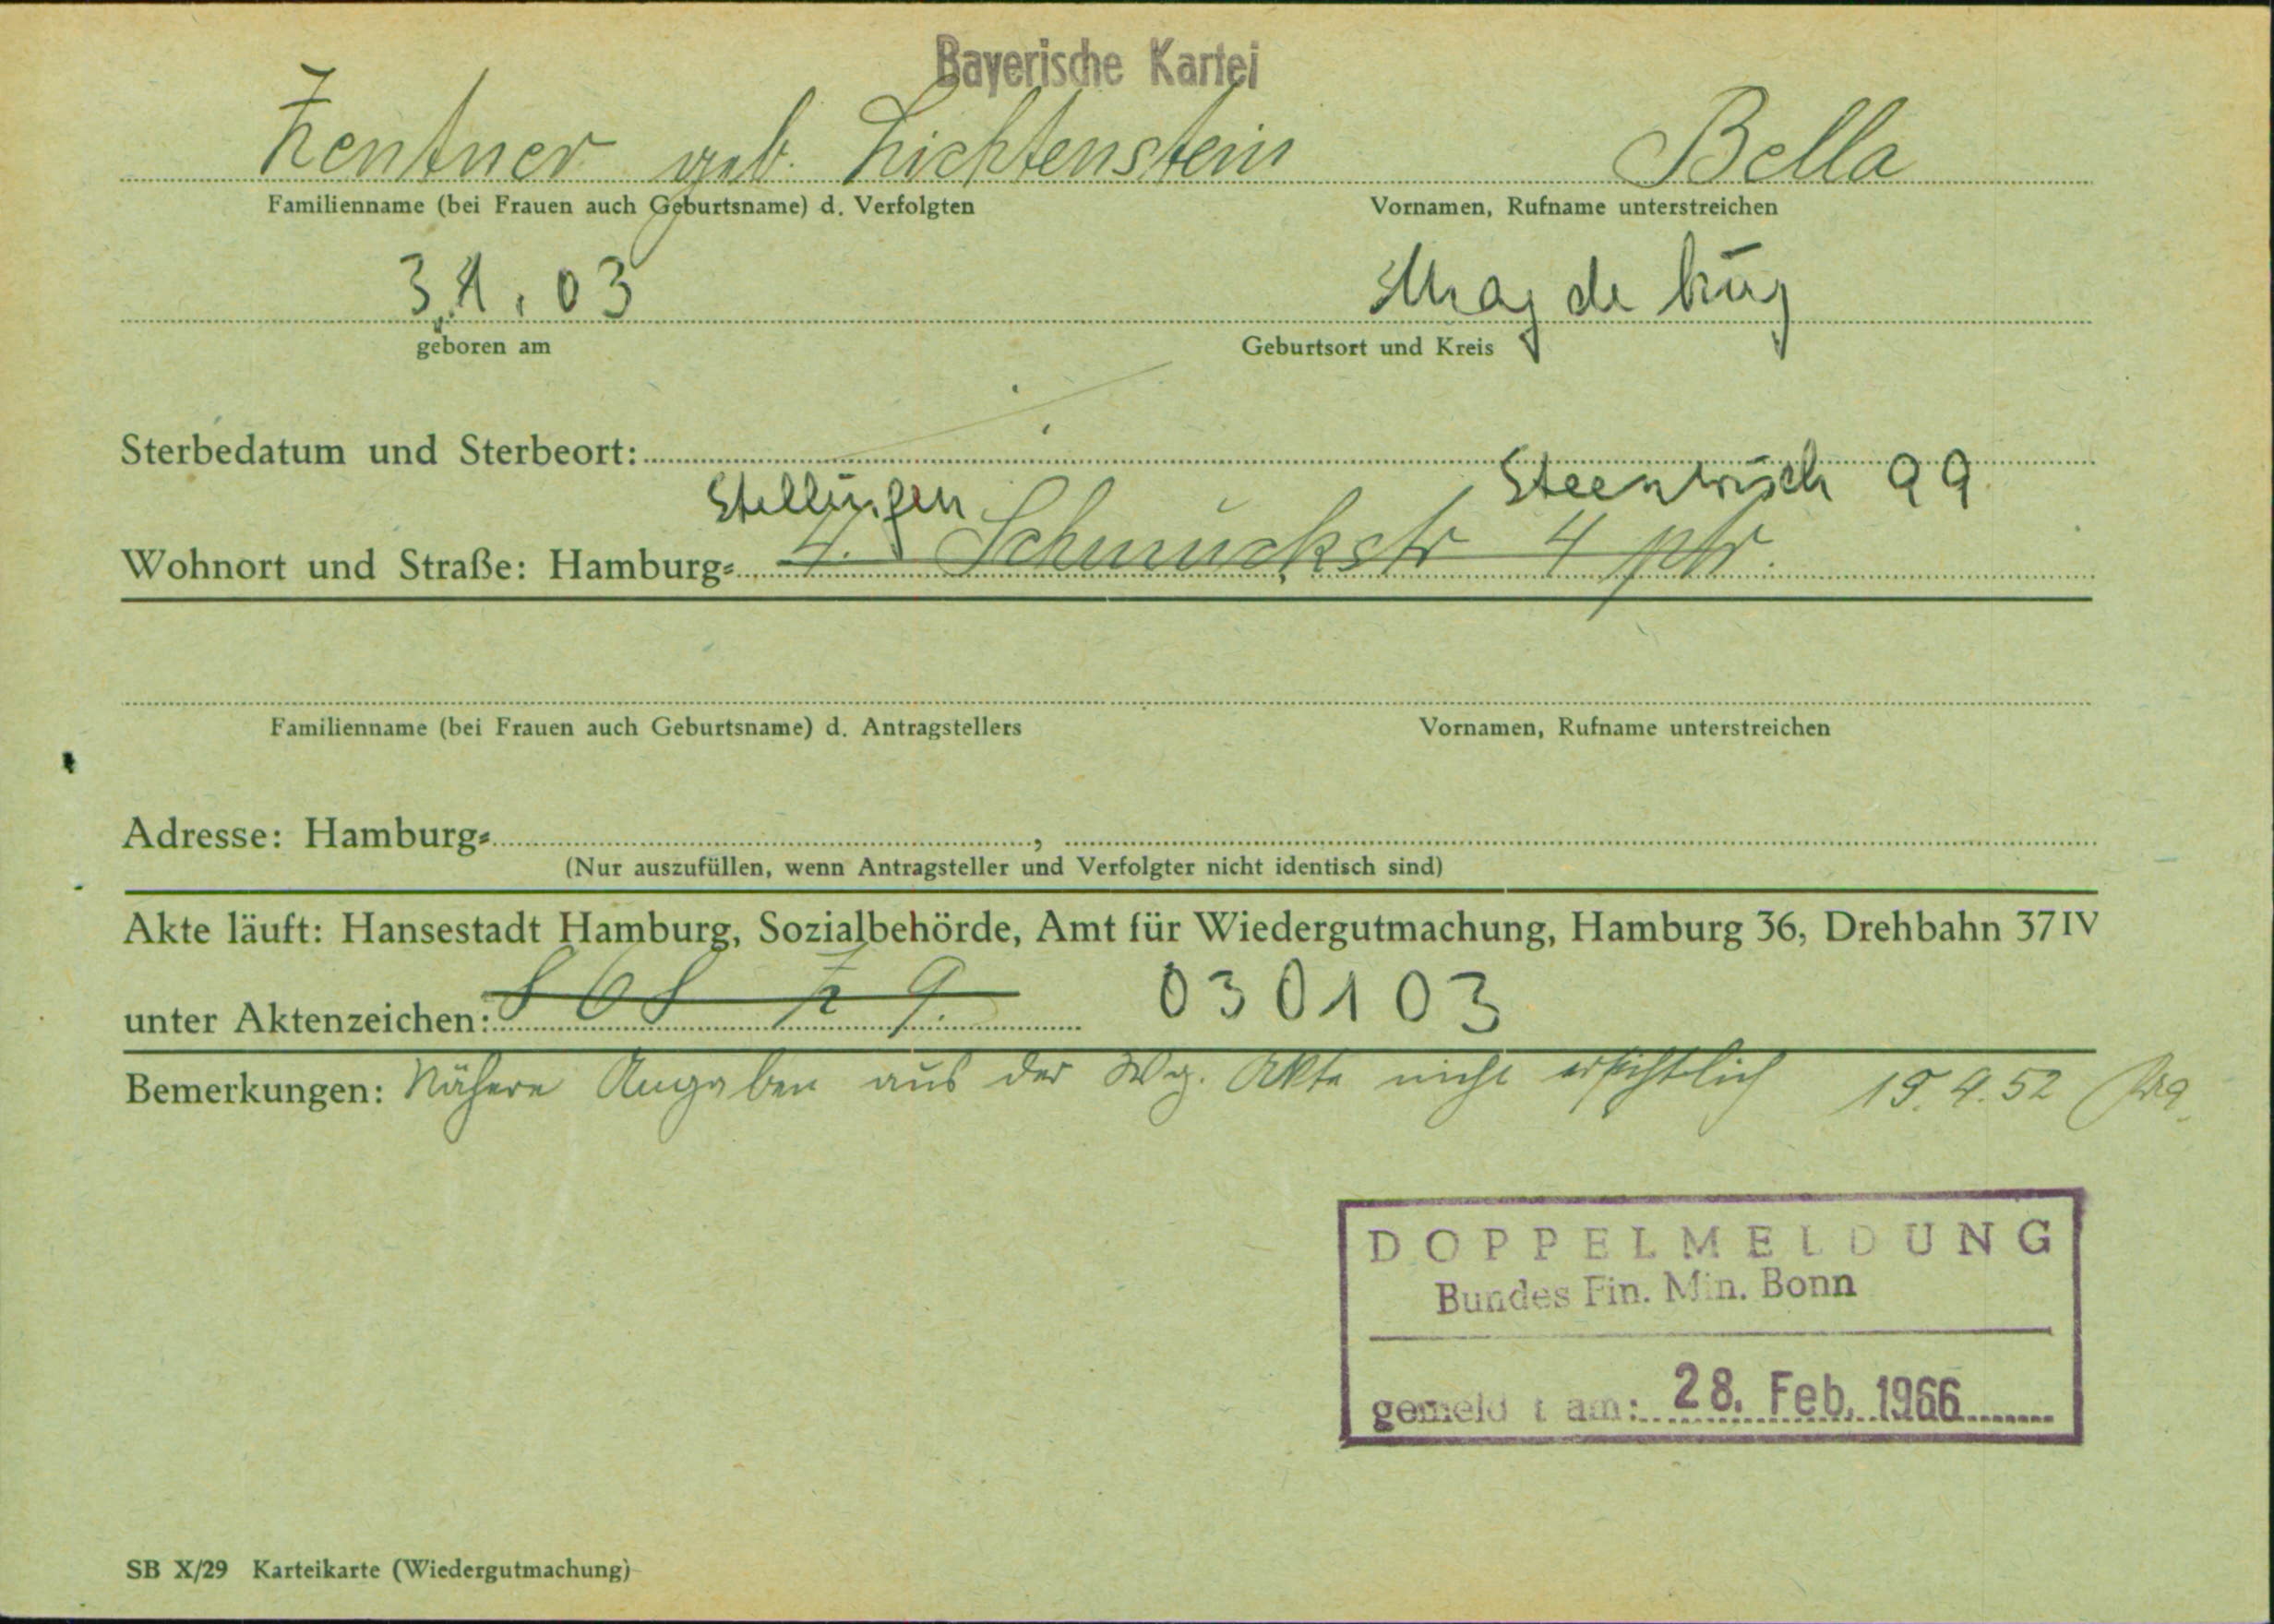 Bayerische Kartei
Zentner geb. Lichtenstein Bella
Familienname (bei Frauen auch Geburtsname) d. Verfolgten Vornamen, Rufname unterstreichen
3.1.03 Magdeburg
geboren am Geburtsort und Kreis
Sterbedatum und Sterbeort:
Stellingen Steenwisch 99
Wohnort und Straße: Hamburg- 4. Schmuckstr 4 ptr.
Familienname (bei Frauen auch Geburtsname) d. Antragstellers Vornamen, Rufname unterstreichen
Adresse: Hamburg- ,
(Nur auszufüllen, wenn Antragsteller und Verfolgter nicht identisch sind)
Akte läuft: Hansestadt Hamburg, Sozialbehörde, Amt für Wiedergutmachung, Hamburg 36, Drehbahn 37 IV
unter Aktenzeichen: 030103
Bemerkungen: Nähere Angaben aus der Wg. Akte nicht ersichtlich 15.4.52
DOPPELMELDUNG
Bundes Fin. Min. Bonn
gemeldet am: 28. Feb. 1966
SB X/29 Karteikarte (Wiedergutmachung)